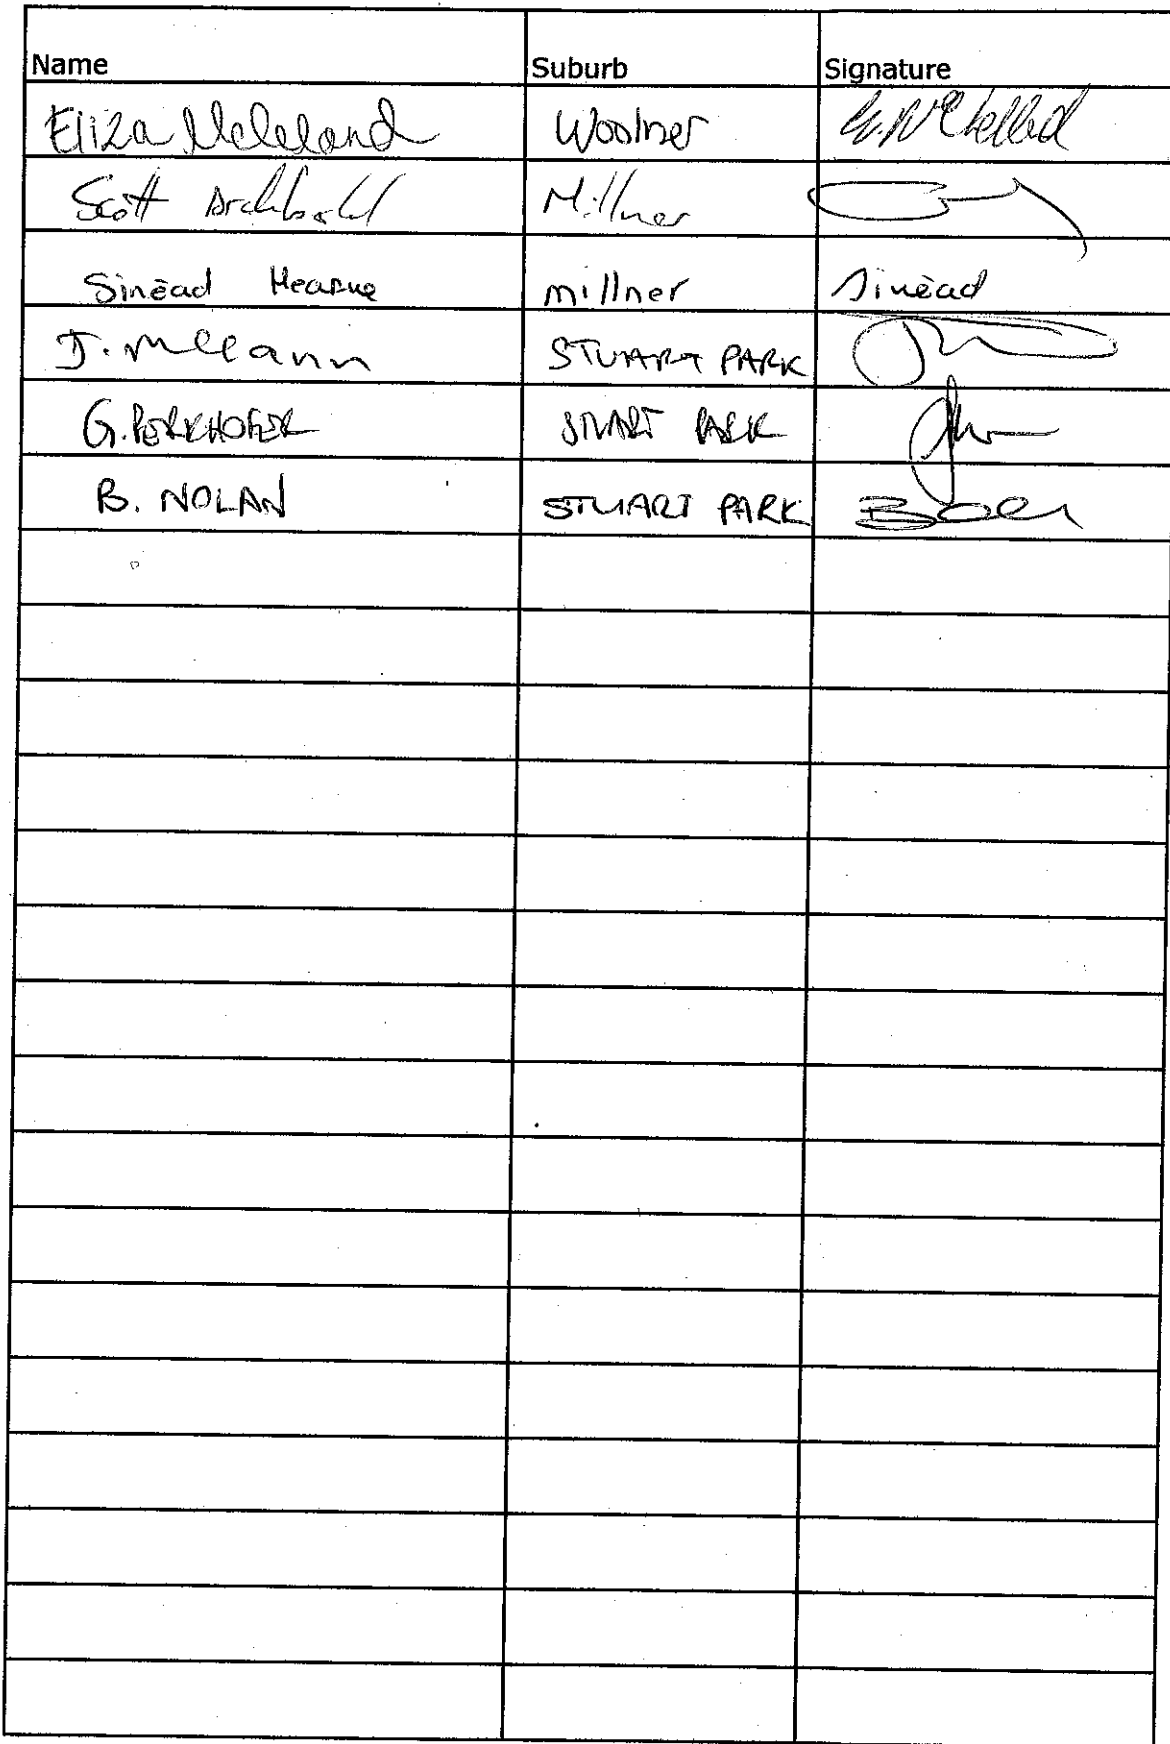 Name Suburb Signature
Eliza Woolner
Scott Archbold Millner
Sinéad Hearne millner Sinéad
J. McCann STUART PARK
G. PERKHOFER STUART PARK
B. NOLAN STUART PARK